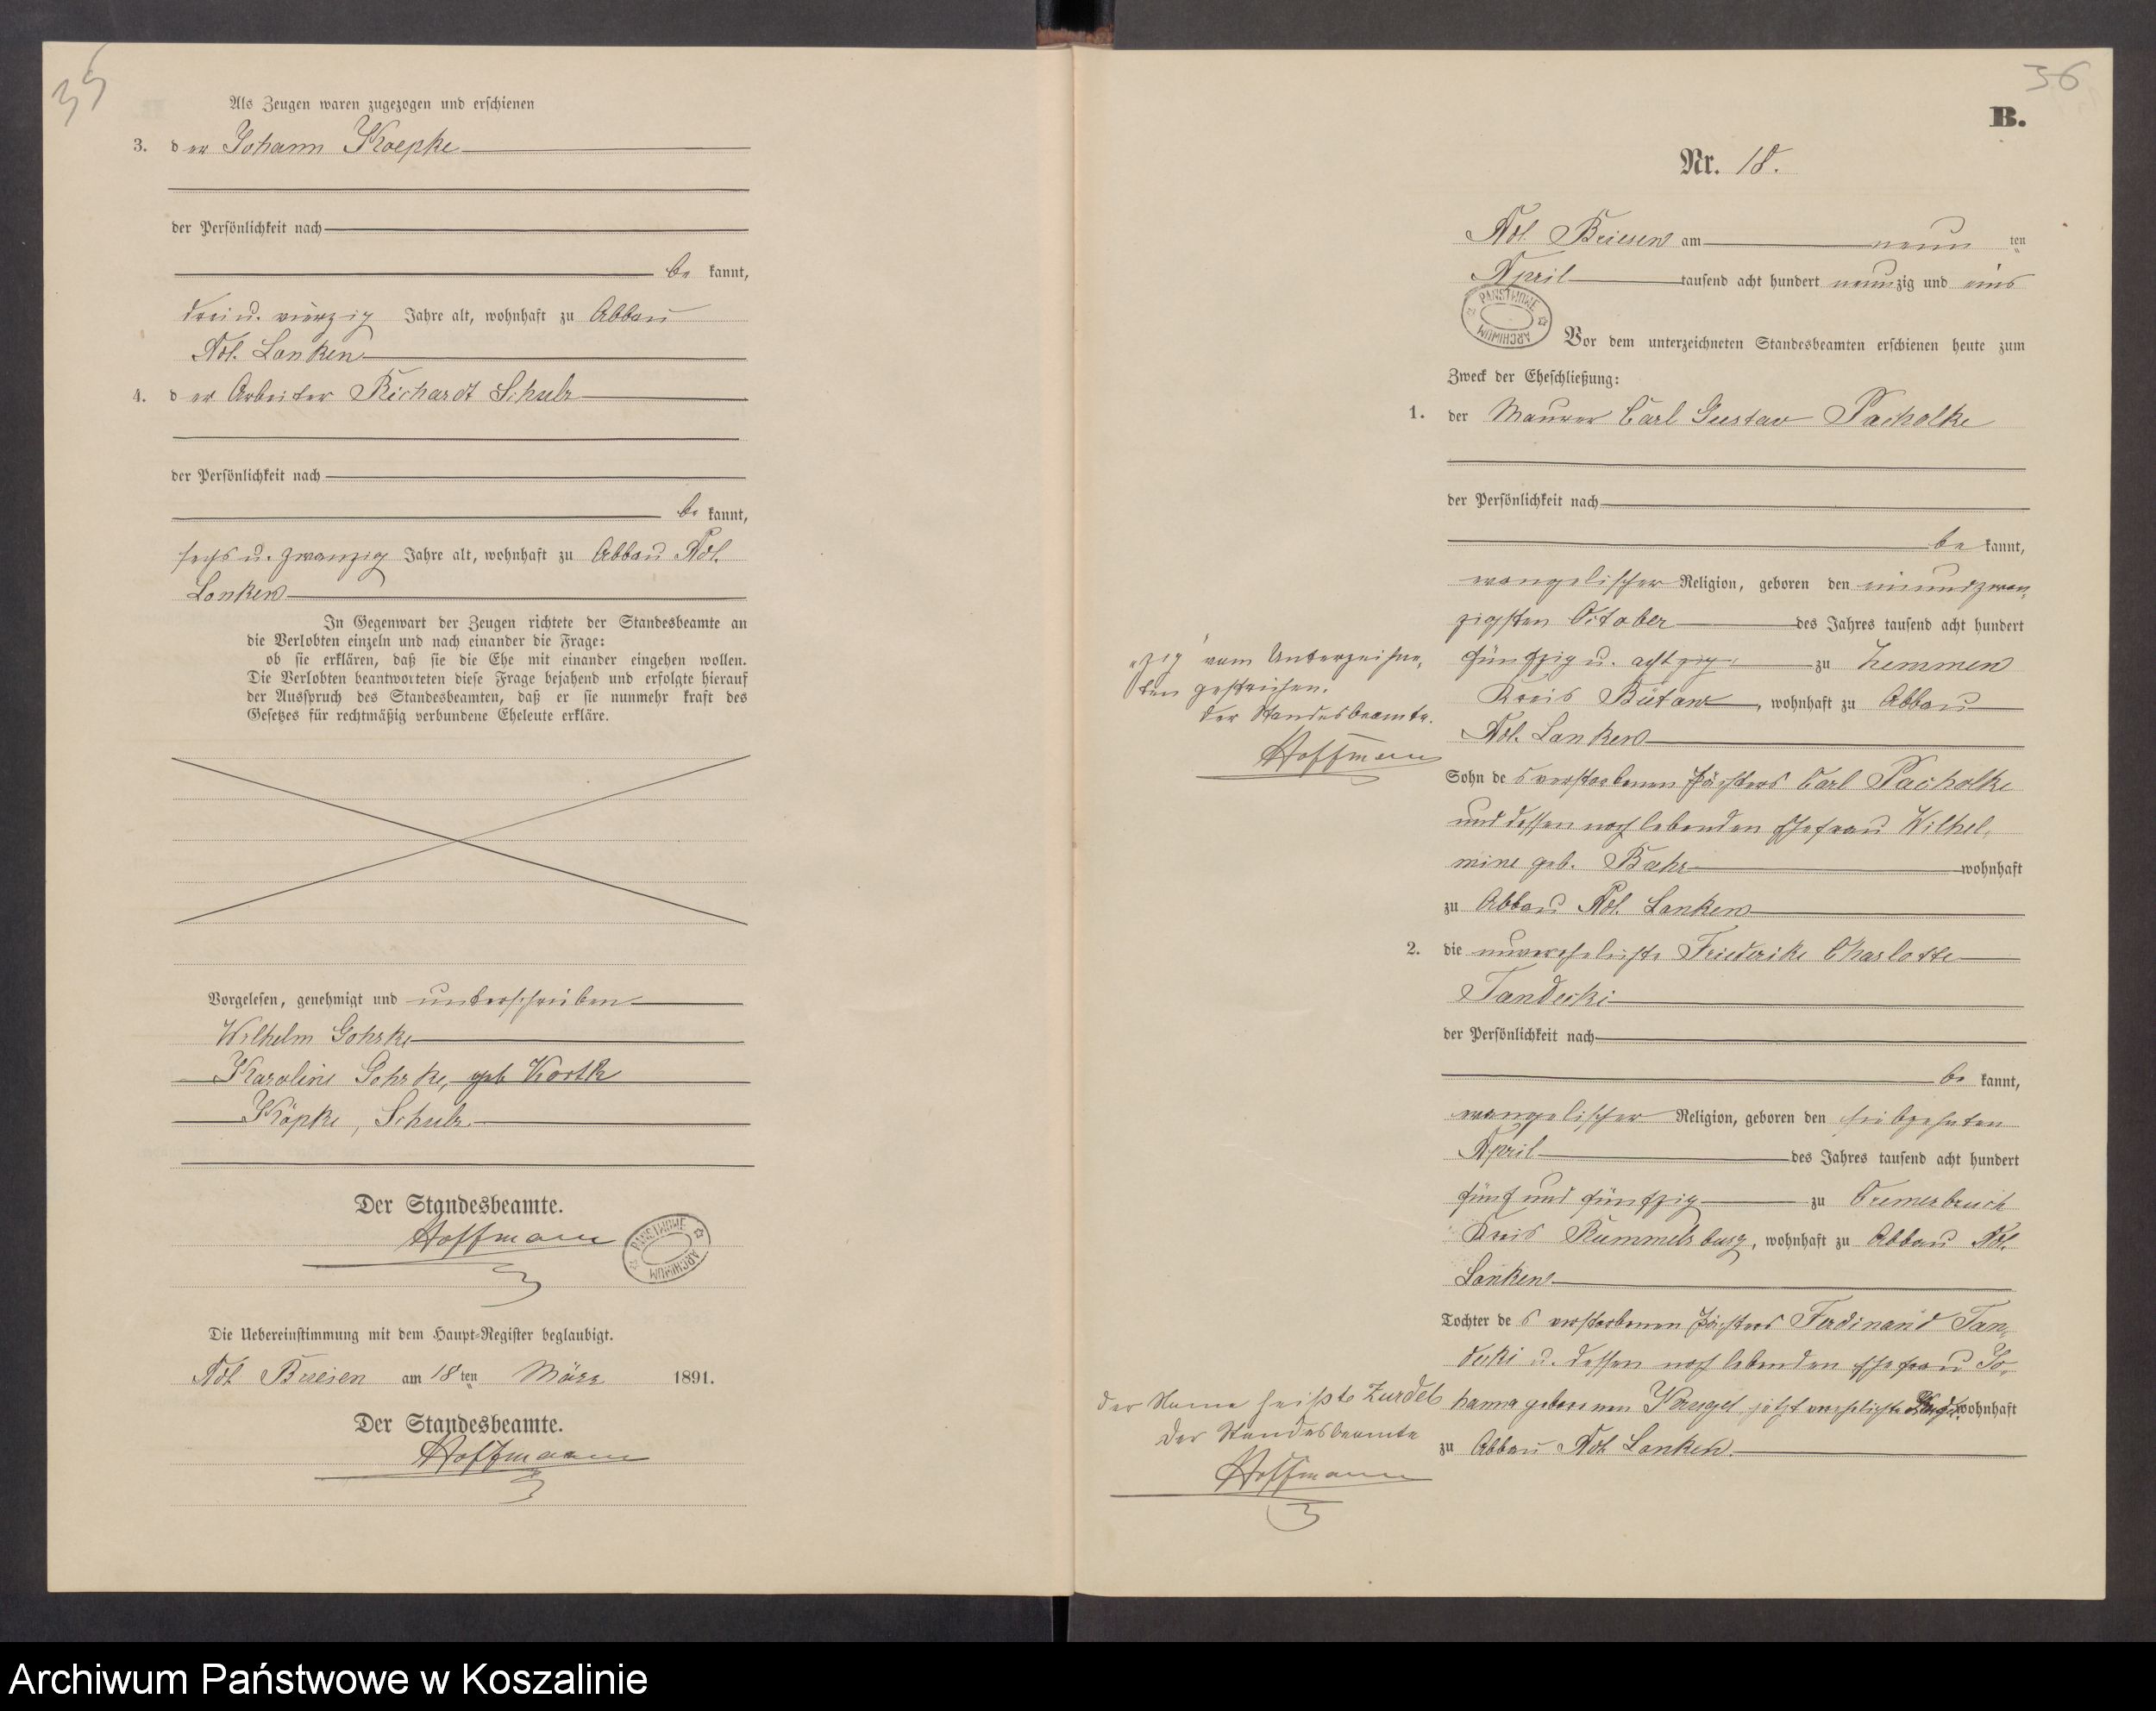 35
Als Zeugen waren zugezogen und erschienen
3. der Johann Koepke
der Persönlichkeit nach
be kannt,
drei u. vierzig Jahre alt, wohnhaft zu Abbau
Adl. Lanken
4. der Arbeiter Richardt Schulz
der Persönlichkeit nach
be kannt,
sechs u. zwanzig Jahre alt, wohnhaft zu Abbau Adl.
Lanken
In Gegenwart der Zeugen richtete der Standesbeamte an
die Verlobten einzeln und nach einander die Frage:
ob sie erklären, daß sie die Ehe mit einander eingehen wollen.
Die Verlobten beantworteten diese Frage bejahend und erfolgte hierauf
der Ausspruch des Standesbeamten, daß er sie nunmehr kraft des
Gesetzes für rechtmäßig verbundene Eheleute erkläre.
Vorgelesen, genehmigt und unterschrieben
Wilhelm Gohrke
Karoline Gohrke, geb
Köpke, Schulz
Der Standesbeamte.
Hoffmann
PAŃSTWOWE ARCHIWUM
Die Uebereinstimmung mit dem Haupt-Register beglaubigt.
Adl Briesen am 18ten März 1891.
Der Standesbeamte.
Hoffmann
36
B.
Nr. 18.
Adl. Briesen am neun ten
April tausend acht hundert neunzig und eins
PAŃSTWOWE ARCHIWUM
Vor dem unterzeichneten Standesbeamten erschienen heute zum
Zweck der Eheschließung:
1. der Maurer Carl Gustav Pacholke
der Persönlichkeit nach
be kannt,
evangelischer Religion, geboren den einundzwan-
zigsten October des Jahres tausend acht hundert
fünfzig u. achtzig zu Zemmen
Kreis Bütow, wohnhaft zu Abbau
Adl. Lanken
Sohn des verstorbenen Pächters Carl Pacholke
und dessen noch lebenden Ehefrau Wilhel-
mine geb. Bahr wohnhaft
zu Abbau Adl. Lanken
2. die unverehelichte Friederike Charlotte
Tandecki
der Persönlichkeit nach
be kannt,
evangelischer Religion, geboren den siebzehnten
April des Jahres tausend acht hundert
fünf und fünfzig zu Cremerbruch
Kreis Rummelsburg, wohnhaft zu Abbau Adl.
Lanken
Tochter des verstorbenen Pächters Ferdinand Tan-
decki u. dessen noch lebenden Ehefrau Jo-
hanna geborenen jetzt verehelichte wohnhaft
zu Abbau Adl Lanken.
"zig" vom Unterzeichne-
ten gestrichen.
der Standesbeamte.
Hoffmann
der Name heißt Zurdel
der Standesbeamte
Hoffmann
Archiwum Państwowe w Koszalinie